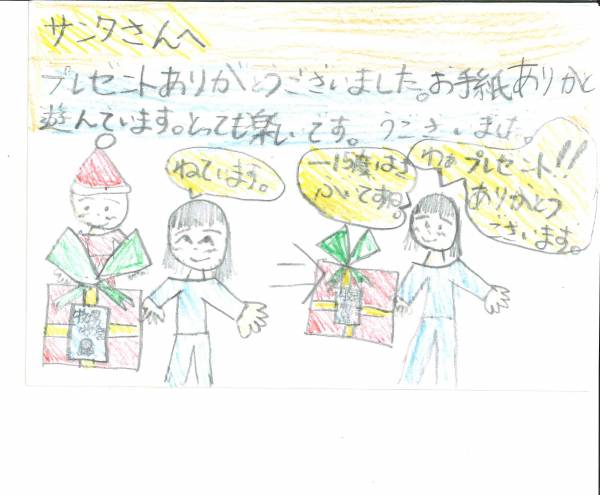 サンタさんへ
プレゼントありがとうございました。お手紙ありがと
遊んでいます。とっても楽しいです。うございました。
ねています。
一15度はさ
ぶいですね。
わぁプレゼント!!
ありがとう
ございます。